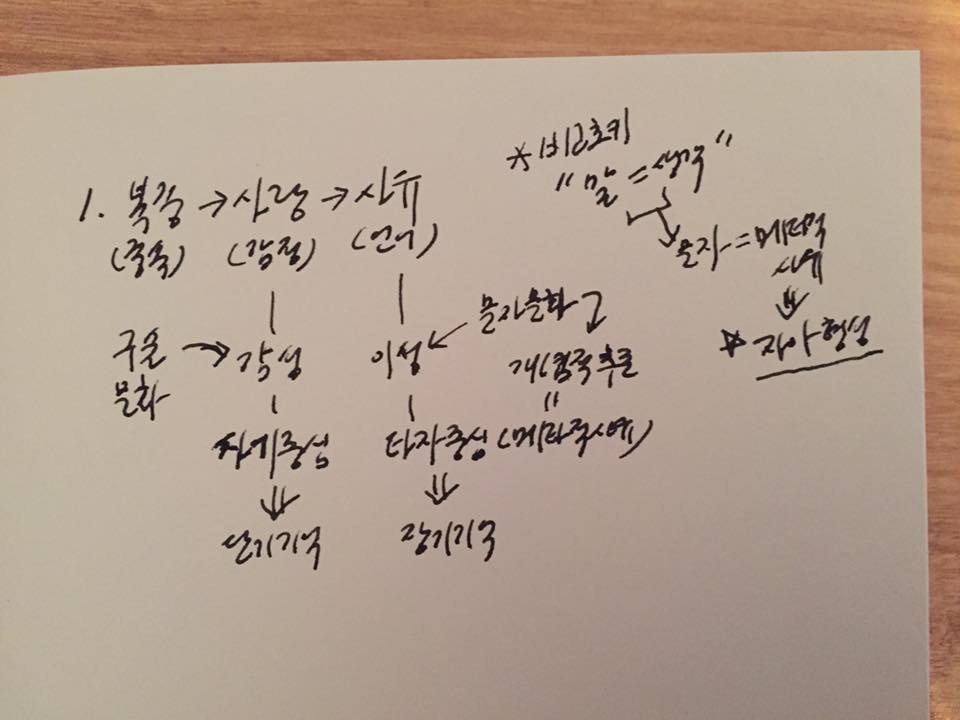 1. 복종 → 사랑 → 사유
(종속) (감정) (언어)
구술 → 감성 이성 ← 문자문화
문화
개념적 추론
자기중심 타자중심 (메타적 사유)
⇓ ⇓
단기기억 장기기억
* 비고츠키
"말 = 생각"
문자 = 메타적
사유
⇓
* 자아형성